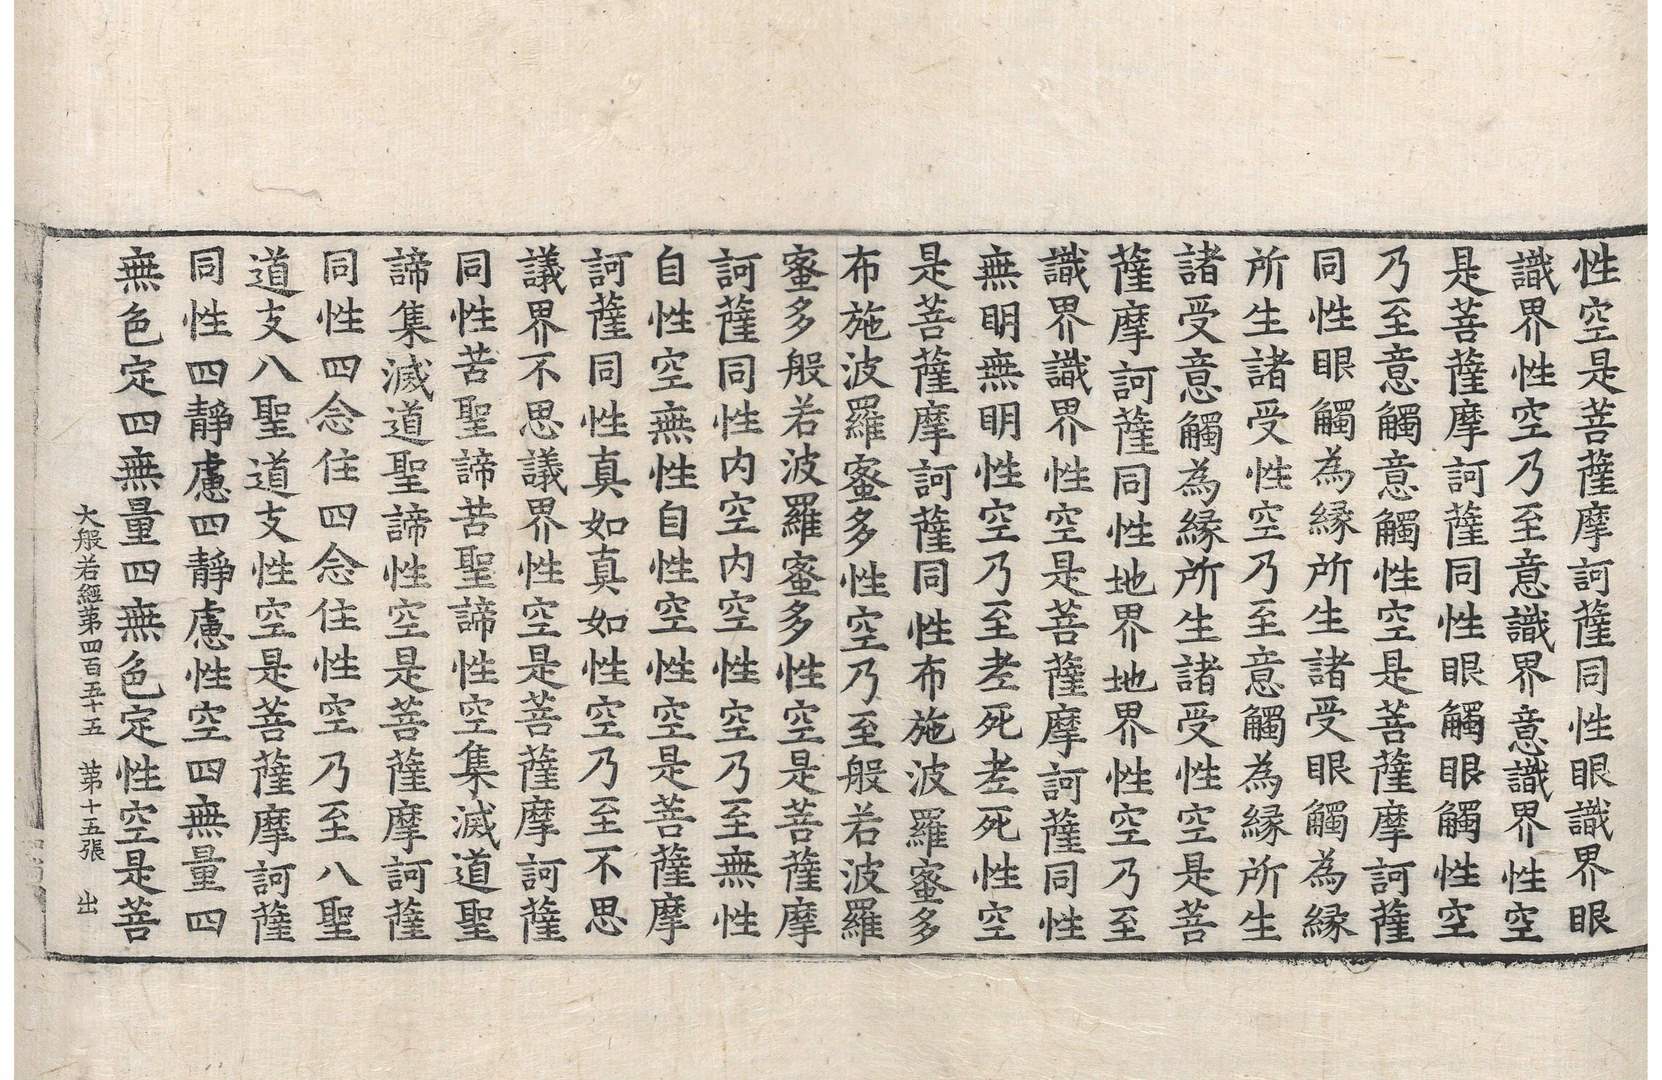 性空是菩薩摩訶薩同性眼識界眼
識界性空乃至意識界意識界性空
是菩薩摩訶薩同性眼觸眼觸性空
乃至意觸意觸性空是菩薩摩訶薩
同性眼觸為緣所生諸受眼觸為緣
所生諸受性空乃至意觸為緣所生
諸受意觸為緣所生諸受性空是菩
薩摩訶薩同性地界地界性空乃至
識界識界性空是菩薩摩訶薩同性
無明無明性空乃至老死老死性空
是菩薩摩訶薩同性布施波羅蜜多
布施波羅蜜多性空乃至般若波羅
蜜多般若波羅蜜多性空是菩薩摩
訶薩同性内空内空性空乃至無性
自性空無性自性空性空是菩薩摩
訶薩同性真如真如性空乃至不思
議界不思議界性空是菩薩摩訶薩
同性苦聖諦苦聖諦性空集滅道聖
諦集滅道聖諦性空是菩薩摩訶薩
同性四念住四念住性空乃至八聖
道支八聖道支性空是菩薩摩訶薩
同性四靜慮四靜慮性空四無量四
無色定四無量四無色定性空是菩
大般若經第四百五十五 第十五張 出